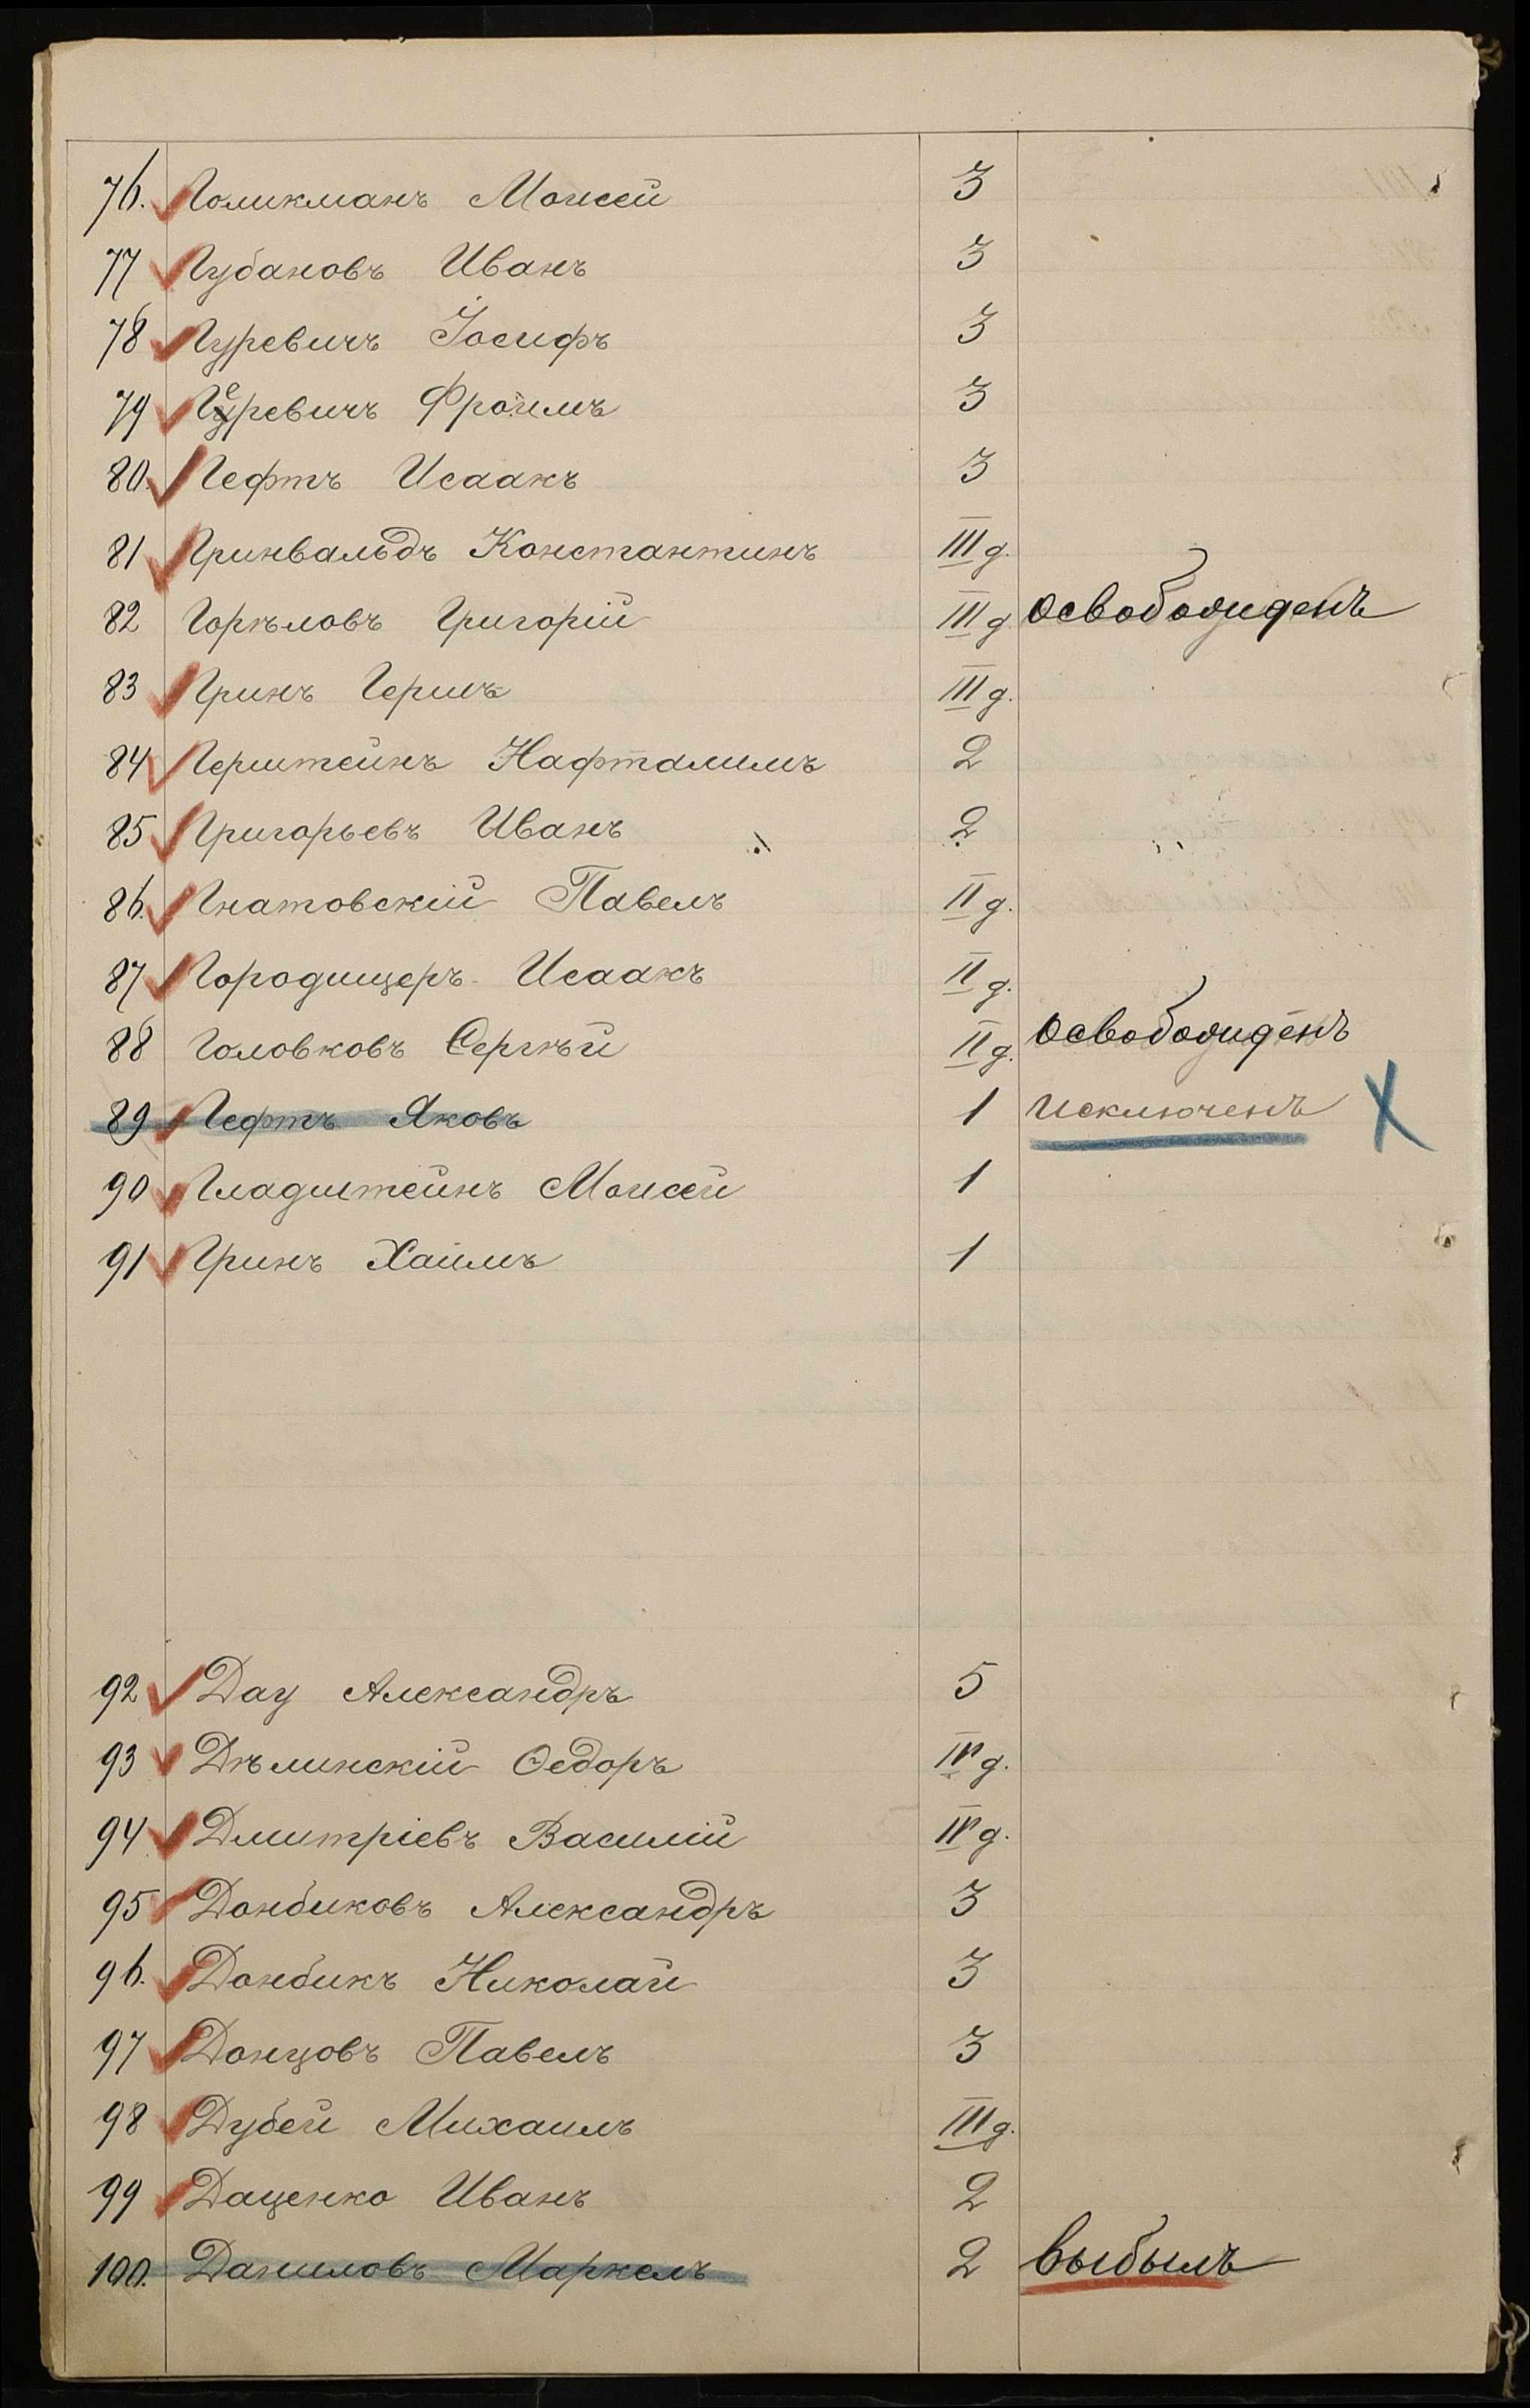 76. Голикманъ Моисей 3
77 Губановъ Иванъ 3
78 Гуревичъ Іосифъ 3
79 Геревичъ Фроимъ 3
80. Гефтъ Исаакъ 3
81 Гринвальдъ Константинъ III д.
82 Горѣловъ Григорій III д. освобожденъ
83 Гринъ Гершъ III д.
84 Герштейнъ Нафталимъ 2
85 Григорьевъ Иванъ 2.
86. Гнатовскій Павелъ II д.
87 Городищеръ Исаакъ II д.
88 Головковъ Сергѣй II д. освобожденъ
89 Гефтъ Яковъ 1 исключенъ X
90 Гладштейнъ Моисей 1
91 Гринъ Хаимъ 1
92 Дау Александръ 5
93 Дѣлинскій Ѳедоръ IV д.
94 Дмитріевъ Василій IV д.
95 Донбиковъ Александръ 3
96. Донбикъ Николай 3
97 Донцовъ Павелъ 3
98 Дубей Михаилъ III д.
99 Даценко Иванъ 2
100. Даниловъ Маркелъ 2 выбылъ